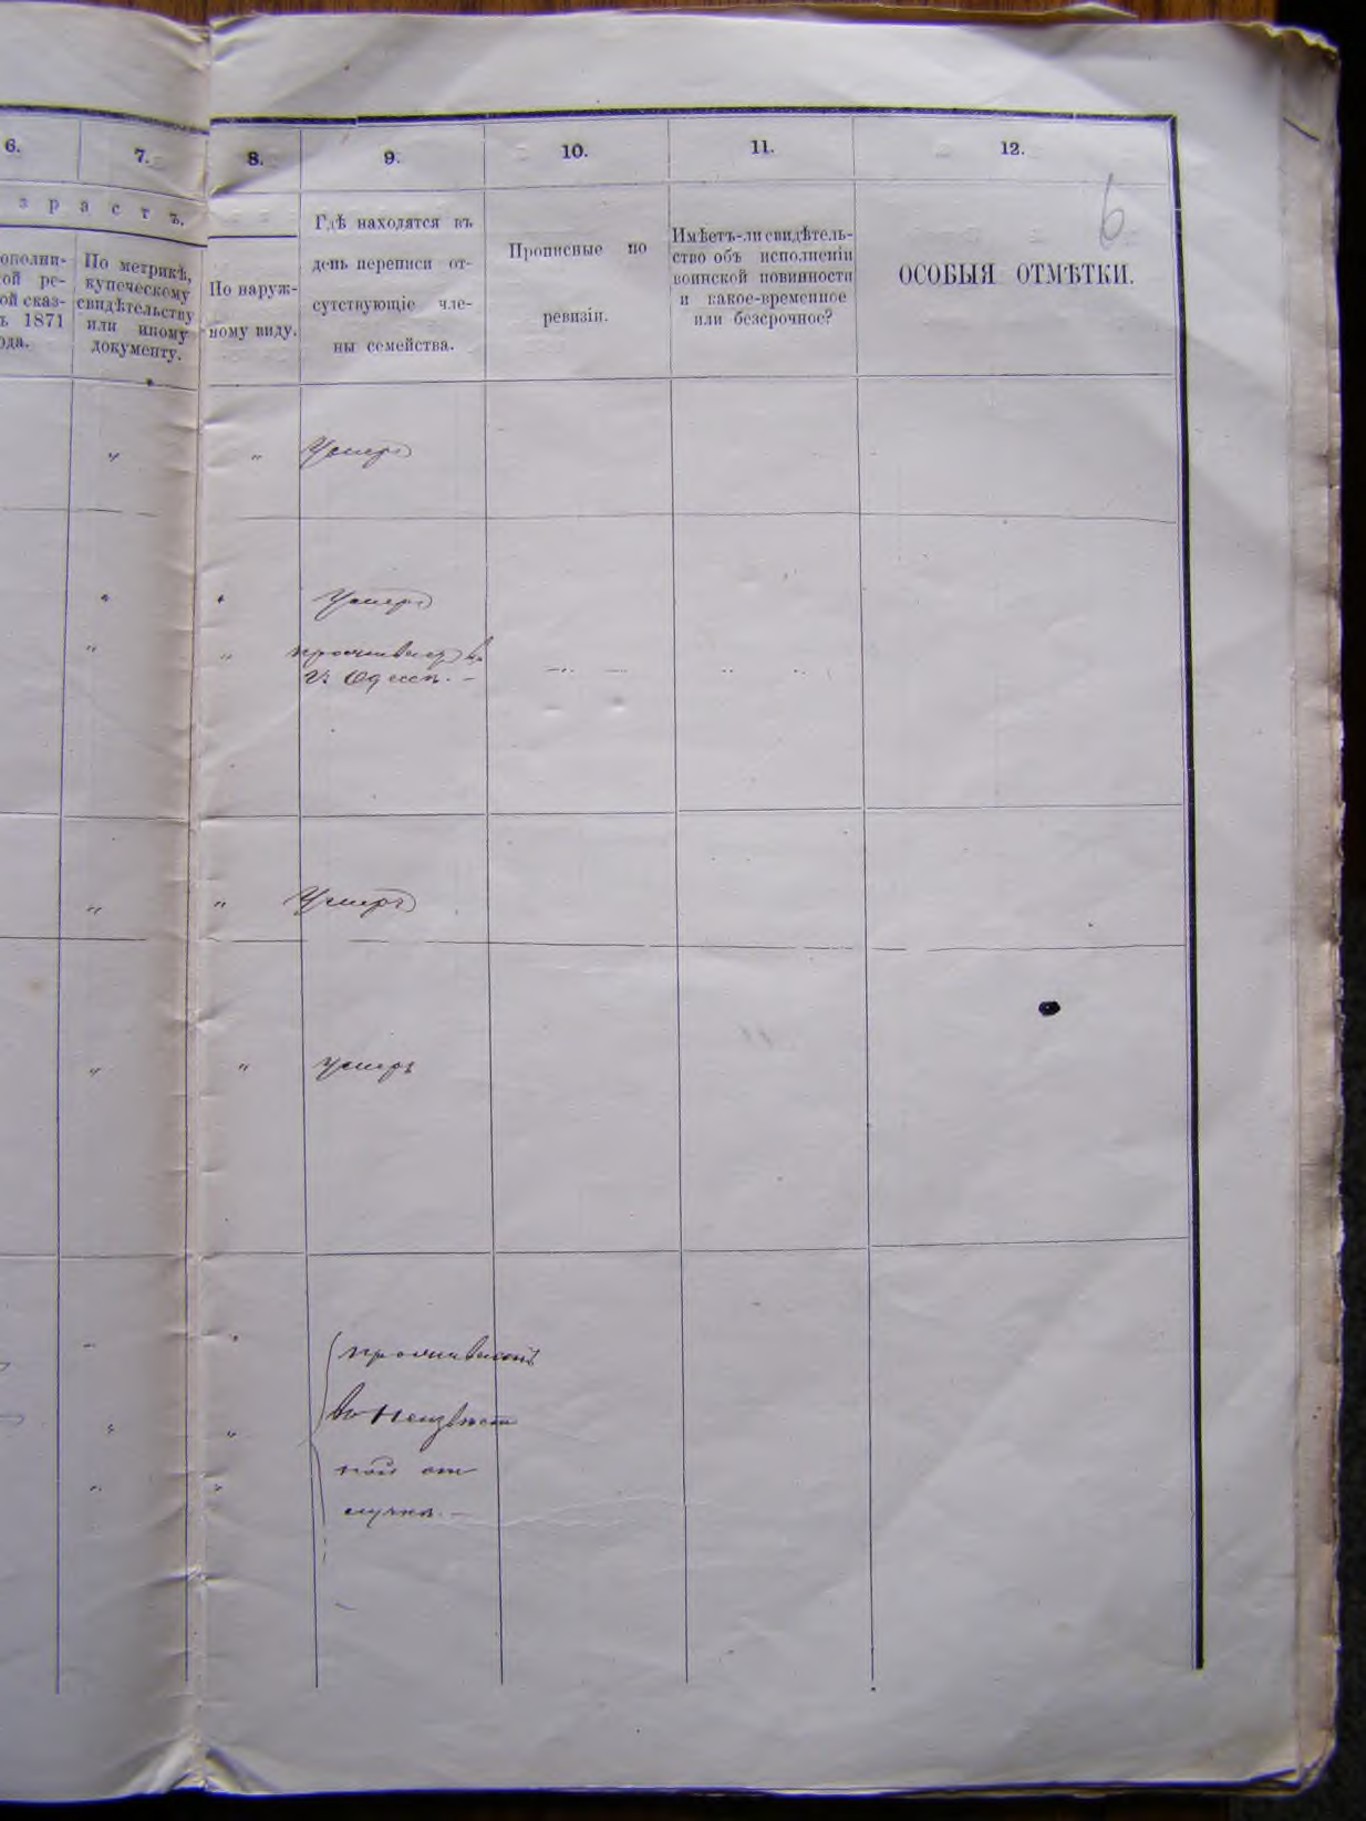 6.
7.
8.
9.
10.
11.
12.
6
з р а с т ъ.
ополни-
ой ре-
ой сказ-
ъ 1871
ода.
По метрикѣ,
купеческому
свидѣтельству
или иному
документу.
По наруж-
ному виду.
Гдѣ находятся въ
день переписи от-
сутствующіе чле-
ны семейства.
Прописные по
ревизіи.
Имѣетъ-ли свидѣтель-
ство объ исполненіи
воинской повинности
и какое-временное
или безсрочное?
ОСОБЫЯ ОТМѢТКИ.
" " Умеръ
" " Умеръ
" " проживаетъ въ
г. Одессѣ. –
" " Умеръ
" " умеръ
проживаютъ
" " въ неизвѣст
" " ной от
лучкѣ. –